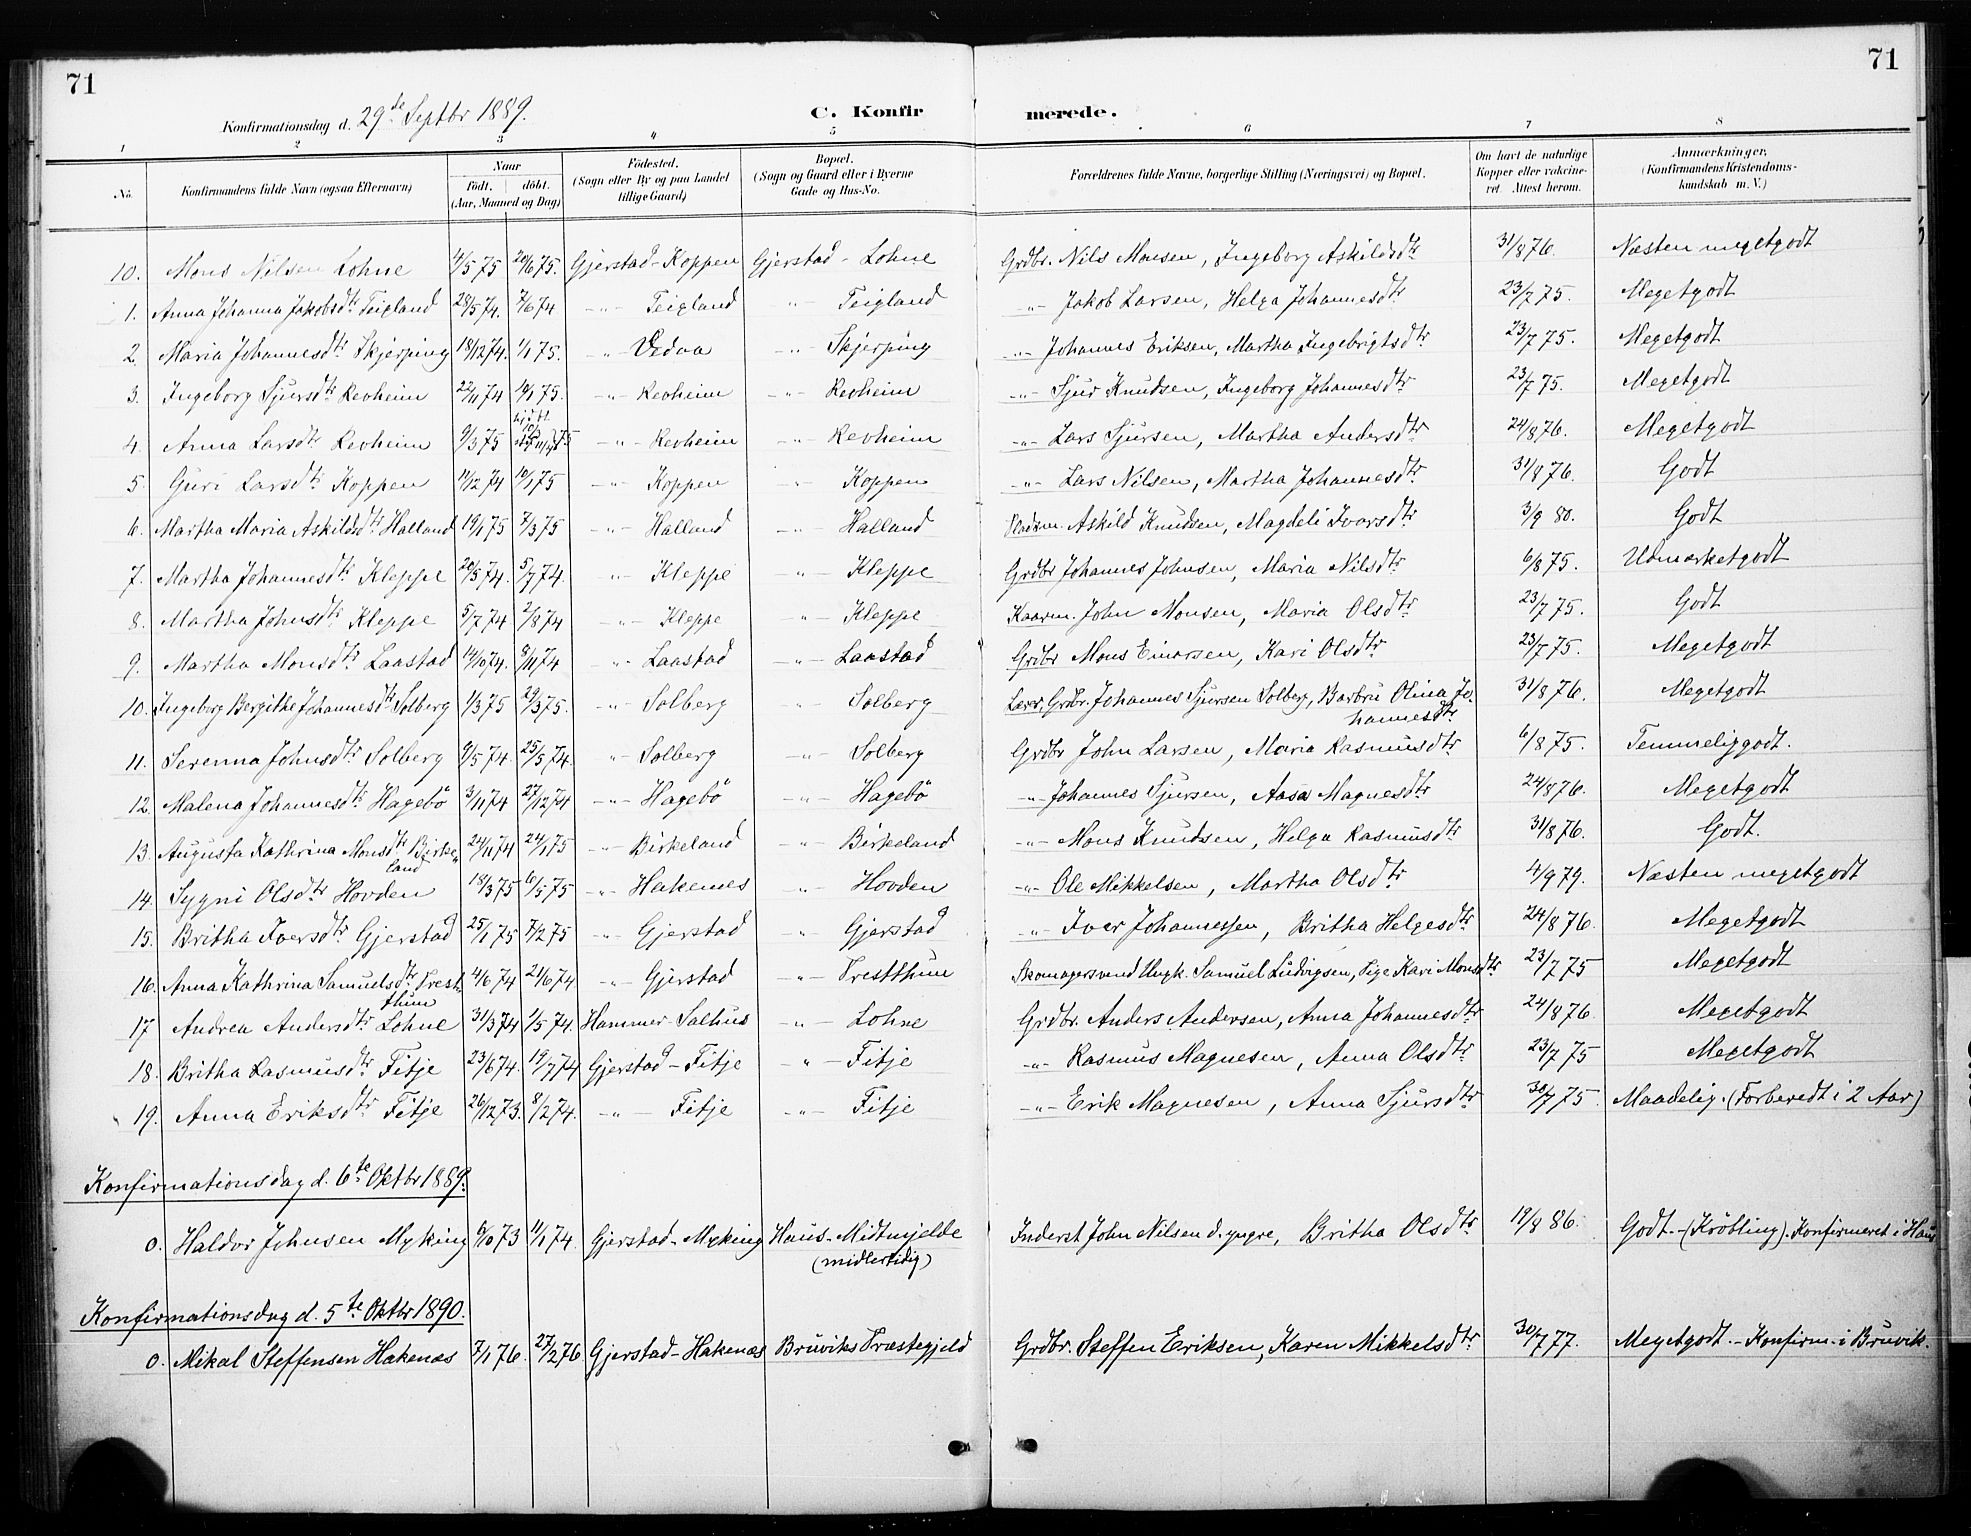 71
71
Konfirmationsdag d. 29de Septbr 1889.
C. Konfirmerede.
1 2 3 4 5 6 7 8
No. Konfirmandens fulde Navn (ogsaa Efternavn)
Naar födt. döbt. (Aar, Maaned og Dag)
Födested. (Sogn eller By og paa Landet tillige Gaard)
Bopæl. (Sogn og Gaard eller i Byerne Gade og Hus-No.
Forældrenes fulde Navne, borgerlige Stilling (Næringsvei) og Bopæl.
Om havt de naturlige Kopper eller vakcineret. Attest herom.
Anmærkninger, (Konfirmandens Kristendomskundskab m. V.)
10. Mons Nilsen Lohne 4/5 75 20/6 75. Gjerstad-Koppen Gjerstad - Lohne Grdbr. Nils Monsen, Ingeborg Askildsdtr 31/8 76. Næsten megetgodt
1. Anna Johanna Jakobsdtr Teigland 28/5 74. 7/6 74 -"- Teigland -"- Teigland -"- Jakob Larsen, Helga Johannesdtr 23/7 75. Megetgodt
2. Maria Johannesdtr Skjerping 18/12 74. 1/1 75. -"- Vedaa -"- Skjerping -"- Johannes Eriksen, Martha Ingebrigtsdtr 23/7 75. Megetgodt
3. Ingeborg Sjursdtr Revheim 22/11 74 10/1 75. -"- Revheim -"- Revheim -"- Sjur Knudsen, Ingeborg Johannesdtr 23/7 75. Megetgodt
4. Anna Larsdtr Revheim 9/3 75 -"- Revheim -"- Revheim -"- Lars Sjursen, Martha Andersdtr 24/8 76. Megetgodt
5. Guri Larsdtr Koppen 11/12 74 10/1 75 -"- Koppen -"- Koppen -"- Lars Nilsen, Martha Johannesdtr 31/8 76. Godt
6. Martha Maria Askildsdtr Halland 19/1 75 7/3 75 -"- Halland -"- Halland Askild Knudsen, Magdeli Ivarsdtr 3/9 80. Godt
7. Martha Johannesdtr Kleppe 20/5 74. 5/7 74. -"- Kleppe -"- Kleppe Grdbr Johannes Johnsen, Maria Nilsdtr 6/8 75. Udmærketgodt
8. Martha Johnsdtr Kleppe 5/7 74 2/8 74 -"- Kleppe -"- Kleppe Kaarm. John Monsen, Maria Olsdtr 23/7 75. Godt
9. Martha Monsdtr Laastad 14/10 74. 8/11 74 -"- Laastad -"- Laastad Grdbr Mons Einarsen, Kari Olsdtr 23/7 75. Megetgodt
10. Ingeborg Bergithe Johannesdtr Solberg 1/3 75 29/3 75. -"- Solberg -"- Solberg Lærer, Grdbr. Johannes Sjursen Solberg, Barbru Olina Jo- 31/8 76. Megetgodt
hannesdtr
11. Serenna Johnsdtr Solberg 9/5 74. 25/5 74. -"- Solberg -"- Solberg Grdbr John Larsen, Maria Rasmusdtr 6/8 75. Temmeliggodt.
12. Malena Johannesdtr Hagebö 3/11 74 27/12 74 -"- Hagebö -"- Hagebö -"- Johannes Sjursen, Aasa Magnesdtr 24/8 76. Megetgodt
13. Augusta Kathrina Monsdtr Birke- 24/11 74 24/1 75 -"- Birkeland -"- Birkeland -"- Mons Knudsen, Helga Rasmusdtr 31/8 76. Godt.
land
14. Sygni Olsdtr Hovden 18/3 75 6/5 75 -"- Hakenes -"- Hovden -"- Ole Mikkelsen, Martha Olsdtr 4/9 79. Næsten megetgodt
15. Britha Iversdtr Gjerstad 25/1 75 7/2 75 -"- Gjerstad -"- Gjerstad -"- Iver Johannessen, Britha Helgesdtr 24/8 76. Megetgodt
16. Anna Kathrina Samuelsdtr Trest- 4/6 74 21/6 74 -"- Gjerstad -"- Trestthun Skomagersvend Ungk. Samuel Ludvigsen, Pige Kari Monsdtr 23/7 75 Megetgodt
thun
17 Andrea Andersdtr Lohne 31/3 74 1/5 74. Hammer-Salhus -"- Lohne Grdbr. Anders Andersen, Anna Johannesdtr 24/8 76. Megetgodt
18. Britha Rasmusdtr Fitje 23/6 74. 19/7 74 Gjerstad - Fitje " - Fitje -"- Rasmus Magnesen, Anna Olsdtr 23/7 75 Megetgodt
19. Anna Eriksdtr Fitje 26/12 73. 8/2 74. -"- Fitje -"- Fitje -"- Erik Magnesen, Anna Sjursdtr 30/7 75. Maadelig. (Forberedt i 2 Aar)
Konfirmationsdag d. 6te Oktbr 1889.
0. Haldor Johnsen Myking 6/10 73 11/1 74. Gjerstad-Myking Haus-Midtmjelde Inderst John Nilsen d. yngre, Britha Olsdtr 19/8 86. Godt.-(Kröbling). Konfirmeret i Haus
(midlertidig)
Konfirmationsdag d. 5te Oktbr 1890.
0. Mikal Steffensen Hakenæs 7/1 76. 27/2 76 Gjerstad-Hakenæs Bruviks Præstegjeld Grdbr. Steffen Eriksen, Karen Mikkelsdtr 30/7 77. Megetgodt.-Konfirm. i Bruvik.